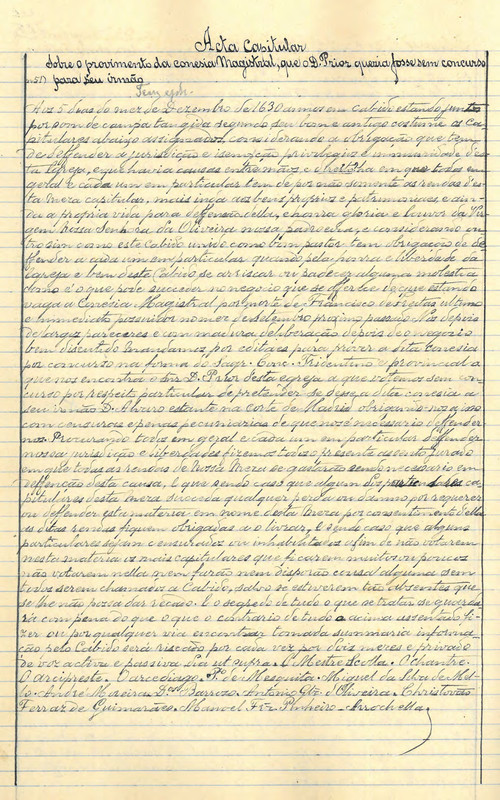 Acta Capitular
Sobre o provimento da conesia Magistral, que o D. Prior queria fosse sem concurso
para seu irmão
Aos 5 dias do mez de Dezembro de 1630 annos em cabido estando junto
por som de campa tangida segundo seu bom e antigo costume os Ca-
pitulares abaixo assignados, considerando a obrigação que tem
de deffender a jurisdicção e isempção privilegios e immunidade des-
ta Igreja, e que havia causas entre mãos, e em que todos em
geral e cada um em particular tem de por não somente as rendas des-
ta Meza capitular, mais inda aos bens proprios e patrimoniaes e ain-
da a propria vida para deffensão della, e honra gloria e louvor da Vir-
gem Nossa Senhora da Oliveira nossa padroeira, e consideramos ou-
tro sim como este Cabido unido como bom pastor tem obrigação de de-
ffender a cada um em particular quando pela honra e liberdade da
Igreja e bem deste Cabido se arriscar ou padecer alguma molestia
como é o que pode succeder no negocio que se offerece de que estando
vaga a Conesia Magistral por morte de Francisco de Freitas ultimo
e immediato possuidor no mez de Setembro proximo passado. Nos depois
de largos pareceres e com madura deliberação depois de o negocio
bem discutido mandamos por editaes para prover a dita conesia
por concurso na forma do Sagr. Conc. Tridentino e provincial a
que nos encontra o snr D. Prior desta egreja a que votemos sem con-
curso por respeito particular de pretender se desse a dita conesia a
seu irmão D. Alvaro estante na corte de Madrid obrigando-nos a isso
com censuras e penas pecuniarias de que nos é necessario deffender-
nos. Procurando todos em geral e cada um em particular deffender
nossa jurisdicção e liberdades fizemos todos o presente assento jurado
em que todas as rendas de Nossa Meza se gastarão sendo necessario em
deffenção desta causa, E que sendo caso que algum dos ca-
pitulares desta meza succeda qualquer perda ou damno por requerer
ou deffender esta materia em nome desta Meza por consentimento della
as ditas rendas fiquem obrigadas a o livrar, E sendo caso que alguns
particulares sejam censurados ou inhabilitados afim de não votarem
nesta materia os mais capitulares que ficarem muitos ou poucos
não votarem nella nem farão nem disporão cousa alguma sem
todos serem chamados a Cabido, salvo se estiverem tão absentes que
se lhe não possa dar recado. E o segredo de tudo o que se tratar se guarda-
rá com pena do que o que o contrario de tudo o acima assentado fi-
zer ou por qualquer via encontrar tomada summaria informa-
ção pelo Cabido será riscado por cada vez por dois mezes e privado
de voz activa e passiva Dia ut supra. O Mestre Escolla. O Chantre.
O arcipreste. O arcediago. de Mesquita. Miguel da Silva de Mel-
lo. André Madeira. Barroso. Antonio Glz d'Oliveira. Christovão
Ferraz de Guimarães. Manoel Frz Pinheiro. Arrochella